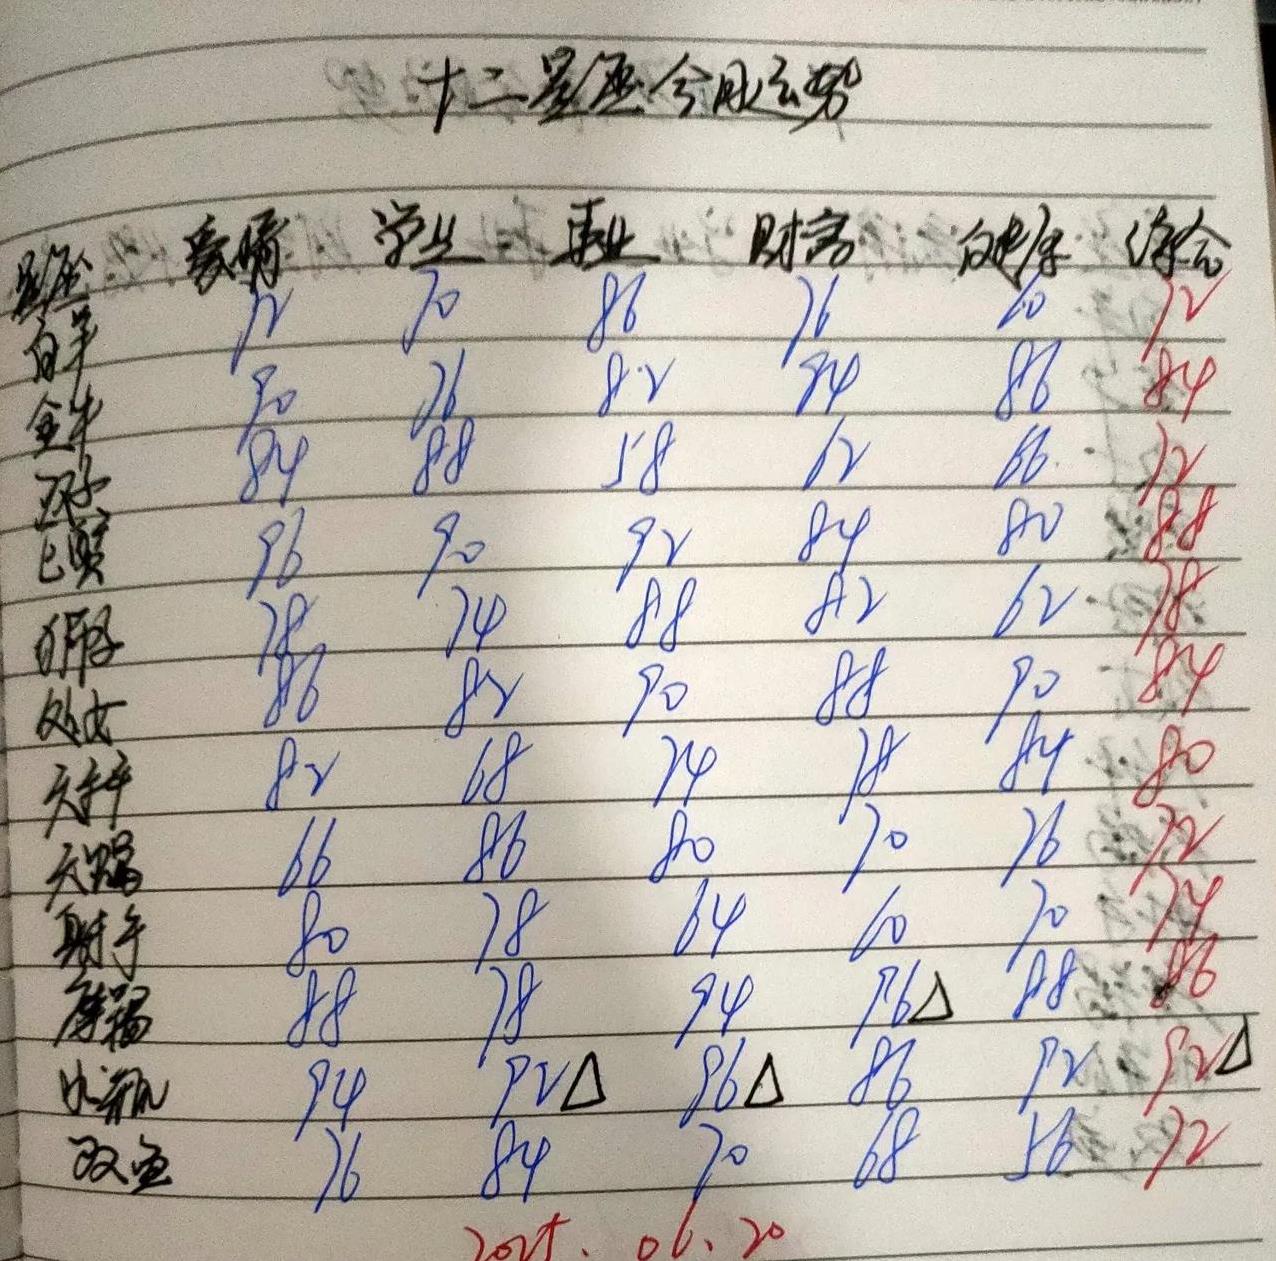 十二星座今日运势
星座 爱情 学业 事业 财富 健康 综合
白羊 72 70 86 76 60 72
金牛 90 76 82 94 86 84
双子 84 88 58 62 66 72
巨蟹 96 90 92 84 80 88
狮子 78 74 88 82 62 78
处女 86 82 90 88 90 84
天秤 82 68 74 78 84 80
天蝎 66 86 80 70 76 72
射手 80 78 64 60 70 74
摩羯 88 78 94 96△ 88 86
水瓶 94 92△ 96△ 86 92 92△
双鱼 76 84 70 68 56 72
2025.06.20